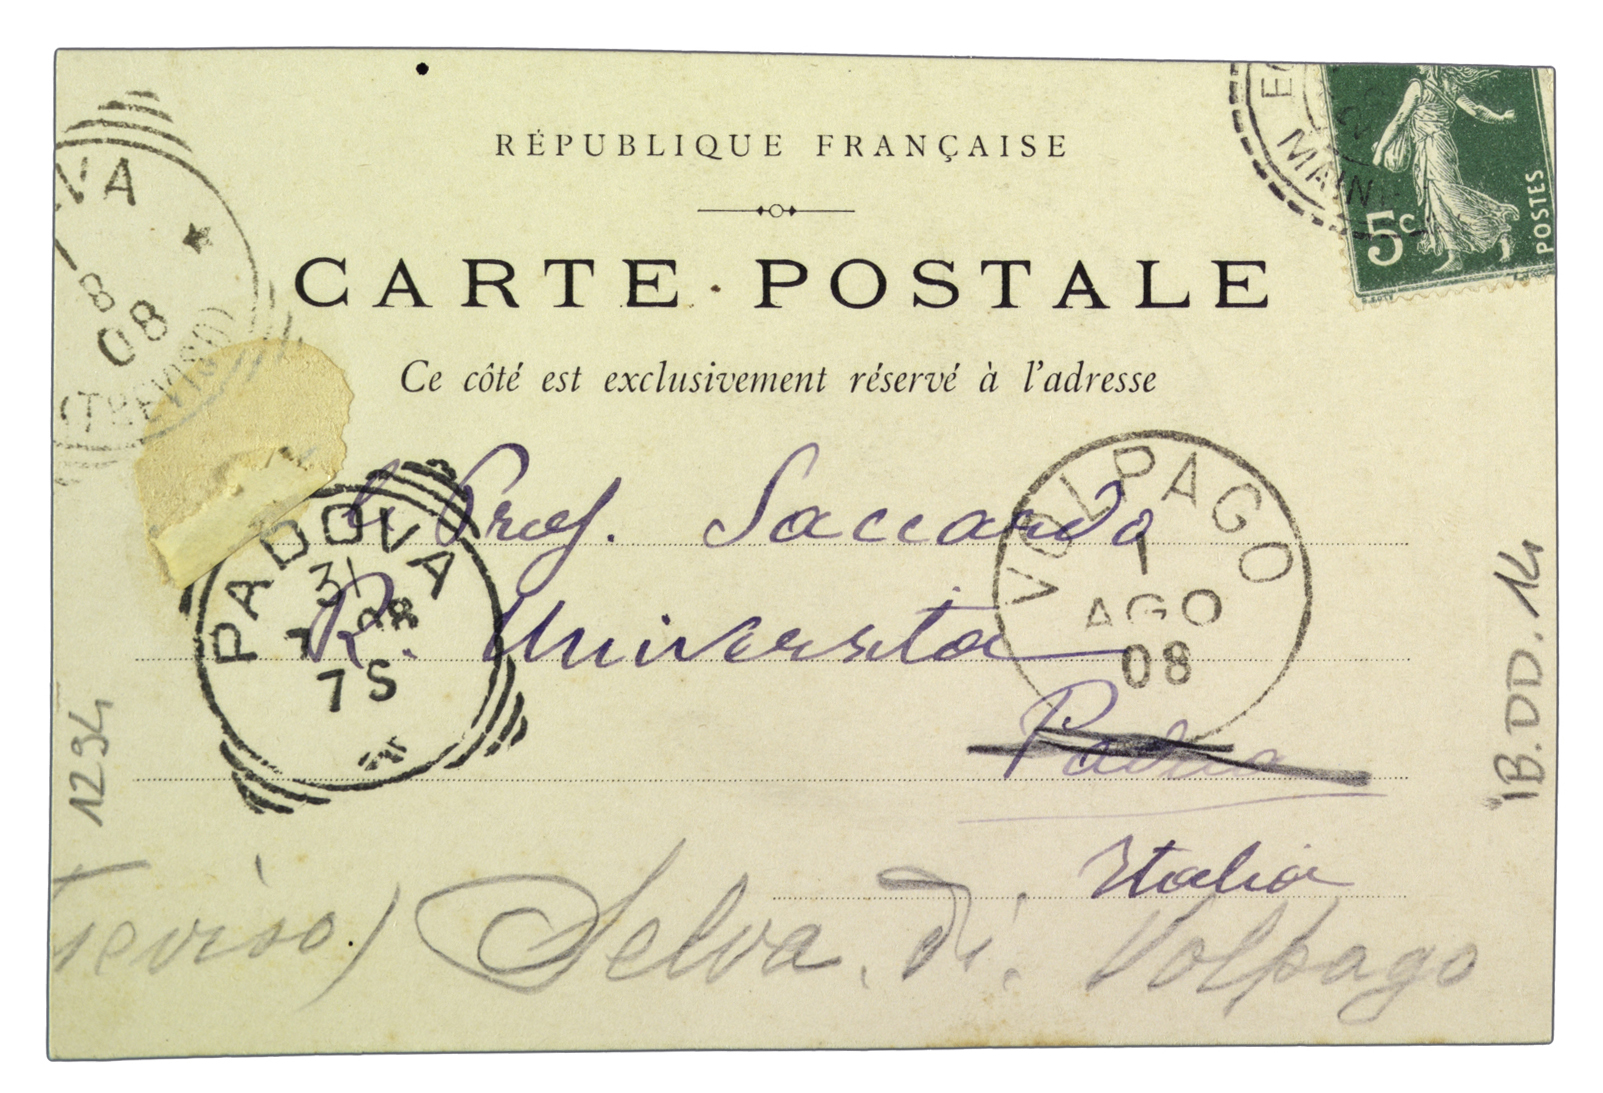 RÉPUBLIQUE FRANÇAISE
CARTE POSTALE
Ce côté est exclusivement réservé à l'adresse
MAIN
5c
POSTES
VA
8
08
(TREVISO)
Prof. Saccardo
R. Universita
Padova
Italia
PADOVA
31
7 08
7S
VOLPAGO
1
AGO
08
1294
IB.DD.14
Treviso) Selva. di. Volpago